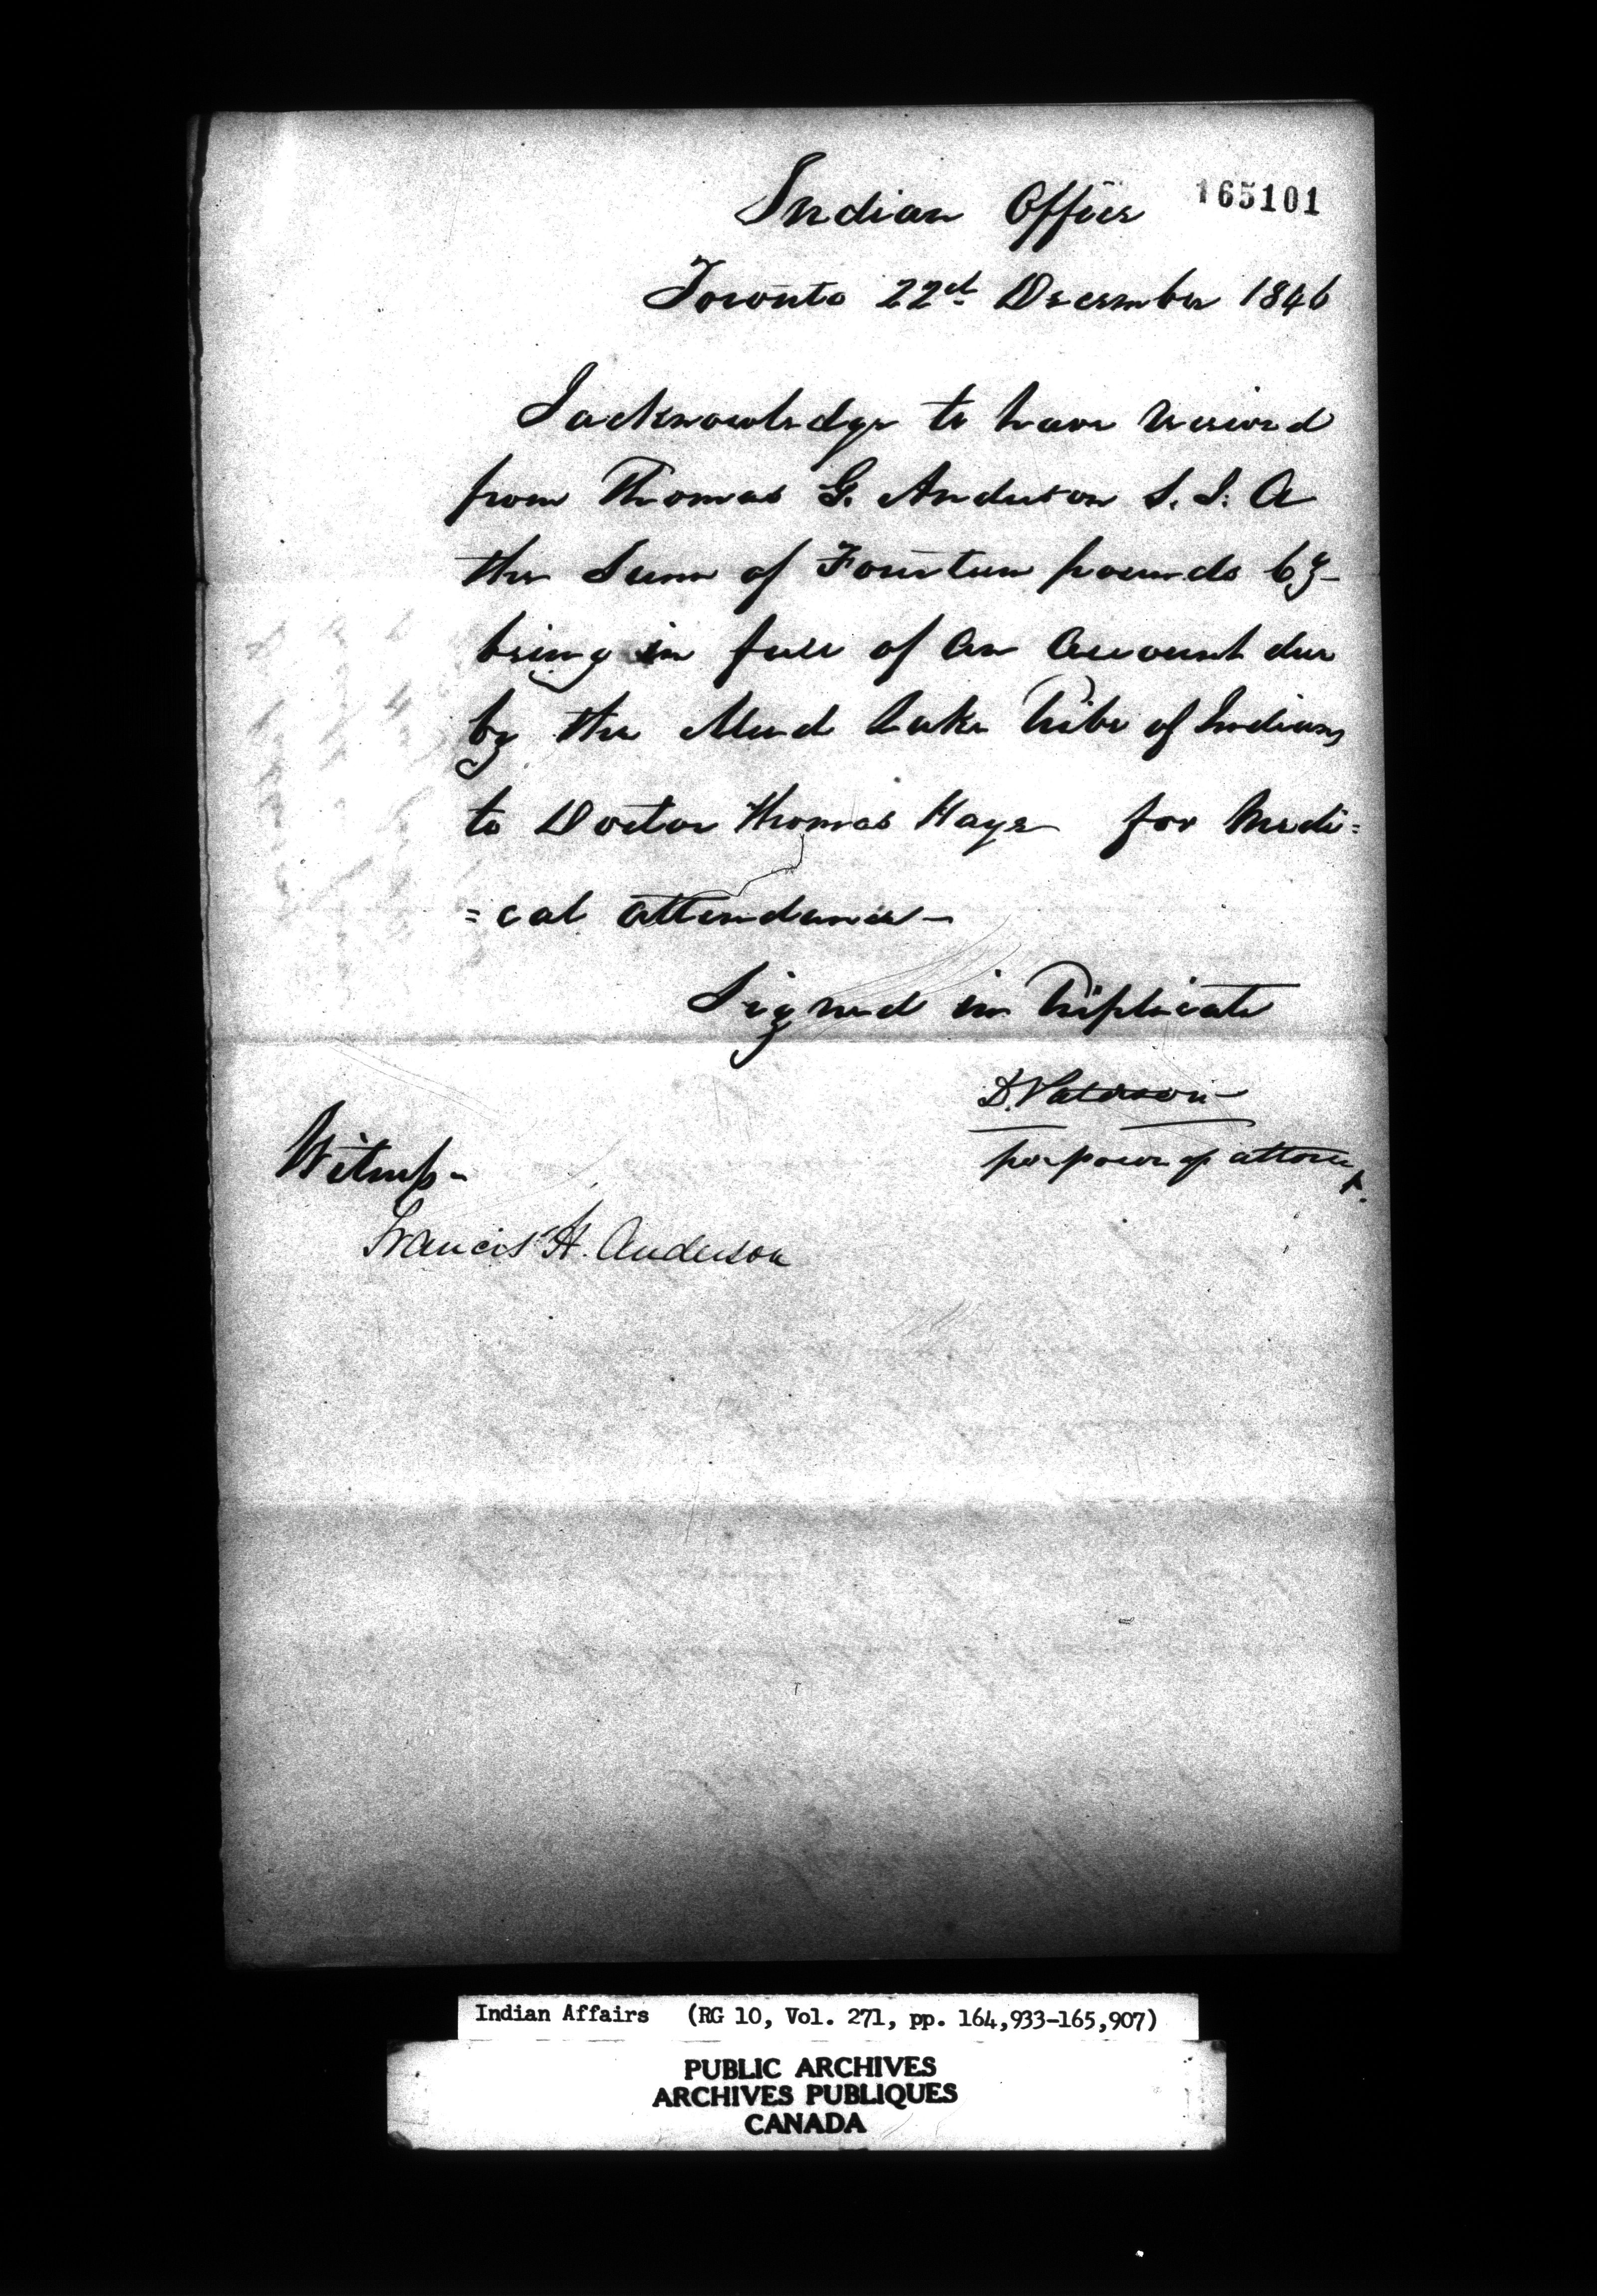 165101
Indian Office
Toronto 22d. December 1846
I acknowledge to have received
from Thomas G. Anderson S. I. A
the Sum of Fourteen pounds
being in full of an account due
by the Mud Lake Tribe of Indians
to Doctor Thomas Haye for Medi=
=cal attendance—
Signed in Triplicate
D. Paterson
per power of attorney.
Witness-
Francis H. Anderson
Indian Affairs (RG 10, Vol. 271, pp. 164,933-165,907)
PUBLIC ARCHIVES
ARCHIVES PUBLIQUES
CANADA